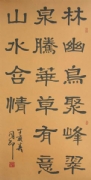 林幽鳥聚峰翠
泉騰華草有意
山水含情